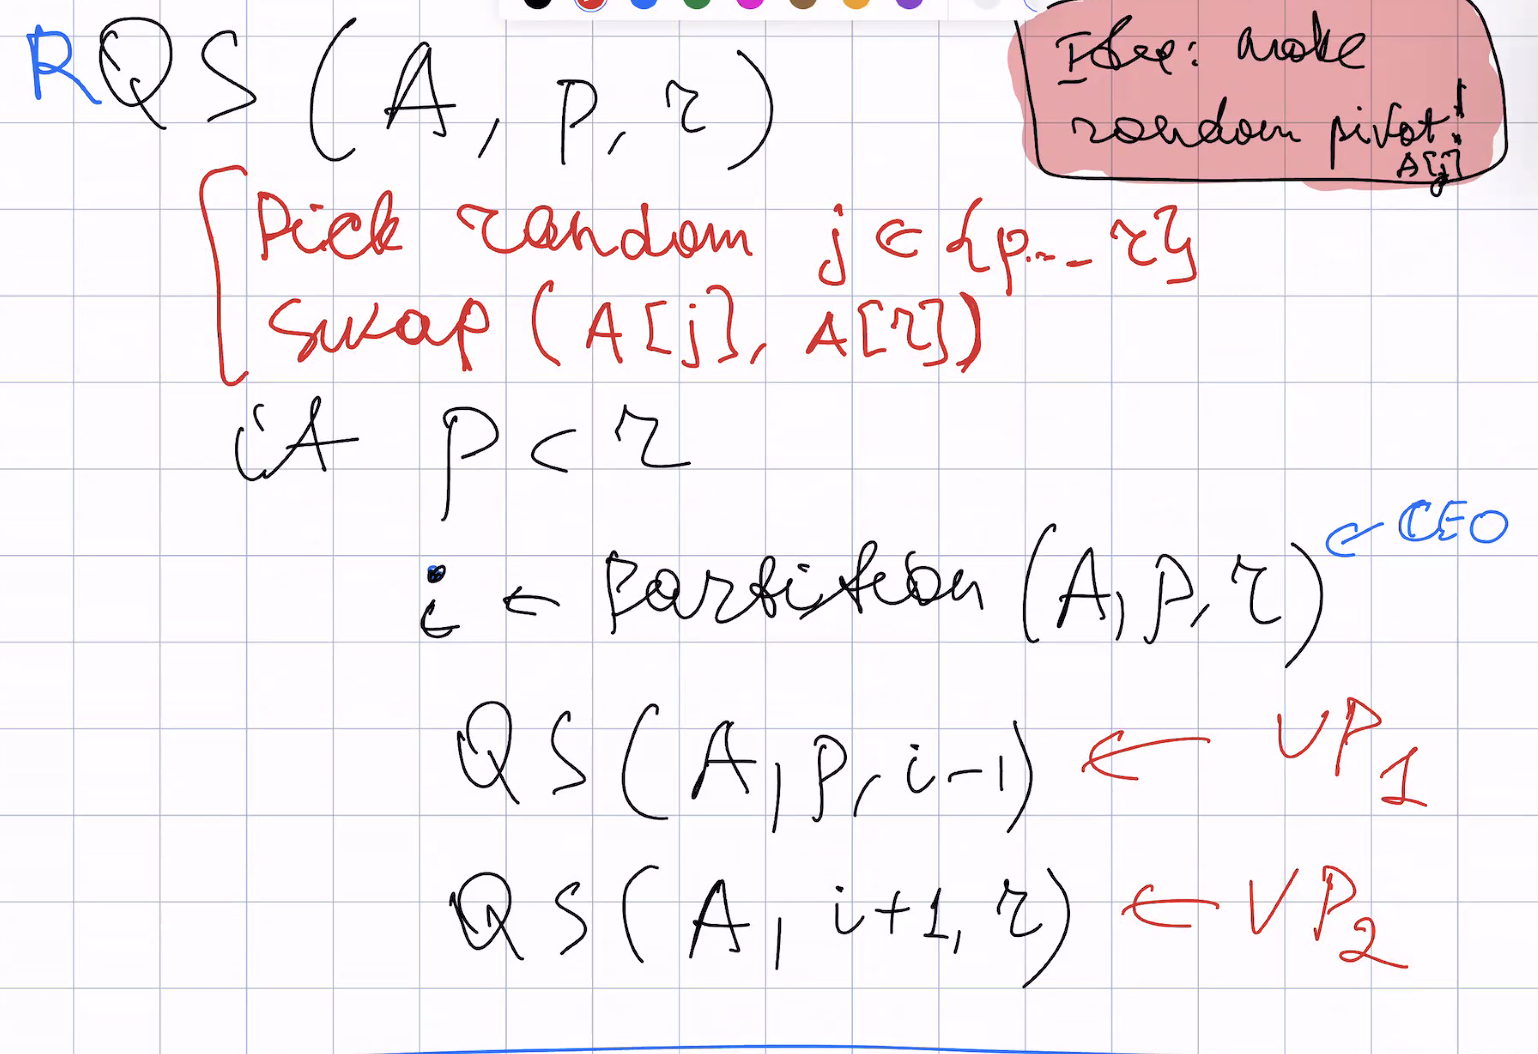 RQS (A, p, r)
Idea: make
random pivot!
A[j]
Pick random j ∈ {p... r}
Swap (A[j], A[r])
if p < r
i ← Partition (A, p, r) ← CEO
QS (A, p, i-1) ← VP1
QS (A, i+1, r) ← VP2